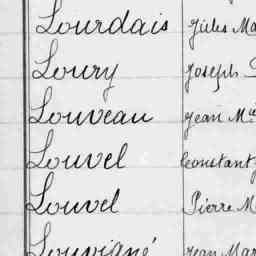 Lourdais Jules Ma
Loury Joseph
Louveau Jean Mie
Louvel Constant
Louvel Pierre M
Louvigné Jean Mar